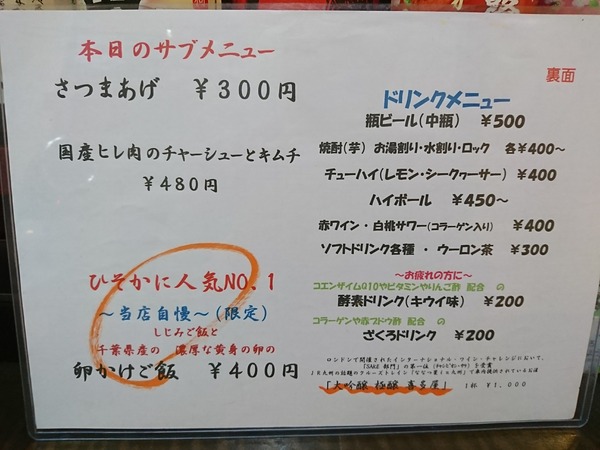 本日のサブメニュー
さつまあげ ￥３００円
国産ヒレ肉のチャーシューとキムチ
￥４８０円
ひそかに人気NO.１
～当店自慢～(限定)
しじみご飯と
千葉県産の 濃厚な黄身の卵の
卵かけご飯 ￥４００円
裏面
ドリンクメニュー
瓶ビール(中瓶) ￥500
焼酎(芋) お湯割り・水割り・ロック 各￥400～
チューハイ(レモン・シークァーサー) ￥400
ハイボール ￥450～
赤ワイン・白桃サワー(コラーゲン入り) ￥400
ソフトドリンク各種 ・ ウーロン茶 ￥300
～お疲れの方に～
コエンザイムQ10やビタミンやりんご酢 配合 の
酵素ドリンク(キウイ味) ￥200
コラーゲンや赤ブドウ酢 配合 の
ざくろドリンク ￥200
ロンドンで開催されたインターナショナル・ワイン・チャレンジにおいて、
「SAKE 部門」の第一位 を受賞
ＪＲ九州の話題のクルーズトレイン「ななつ星ｉｎ九州」で車内提供されているお酒
「大吟醸 極醸 喜多屋」 １杯 ￥１,０００